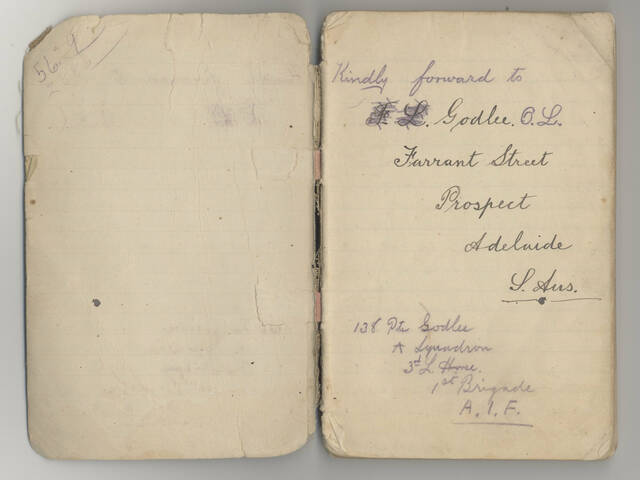 56
Kindly forward to
L. Godlee. O.L.
Farrant Street
Prospect
Adelaide
S. Aus.
138 Pte Godlee
A Squadron
3rd L Horse.
1st Brigade
A. I. F.